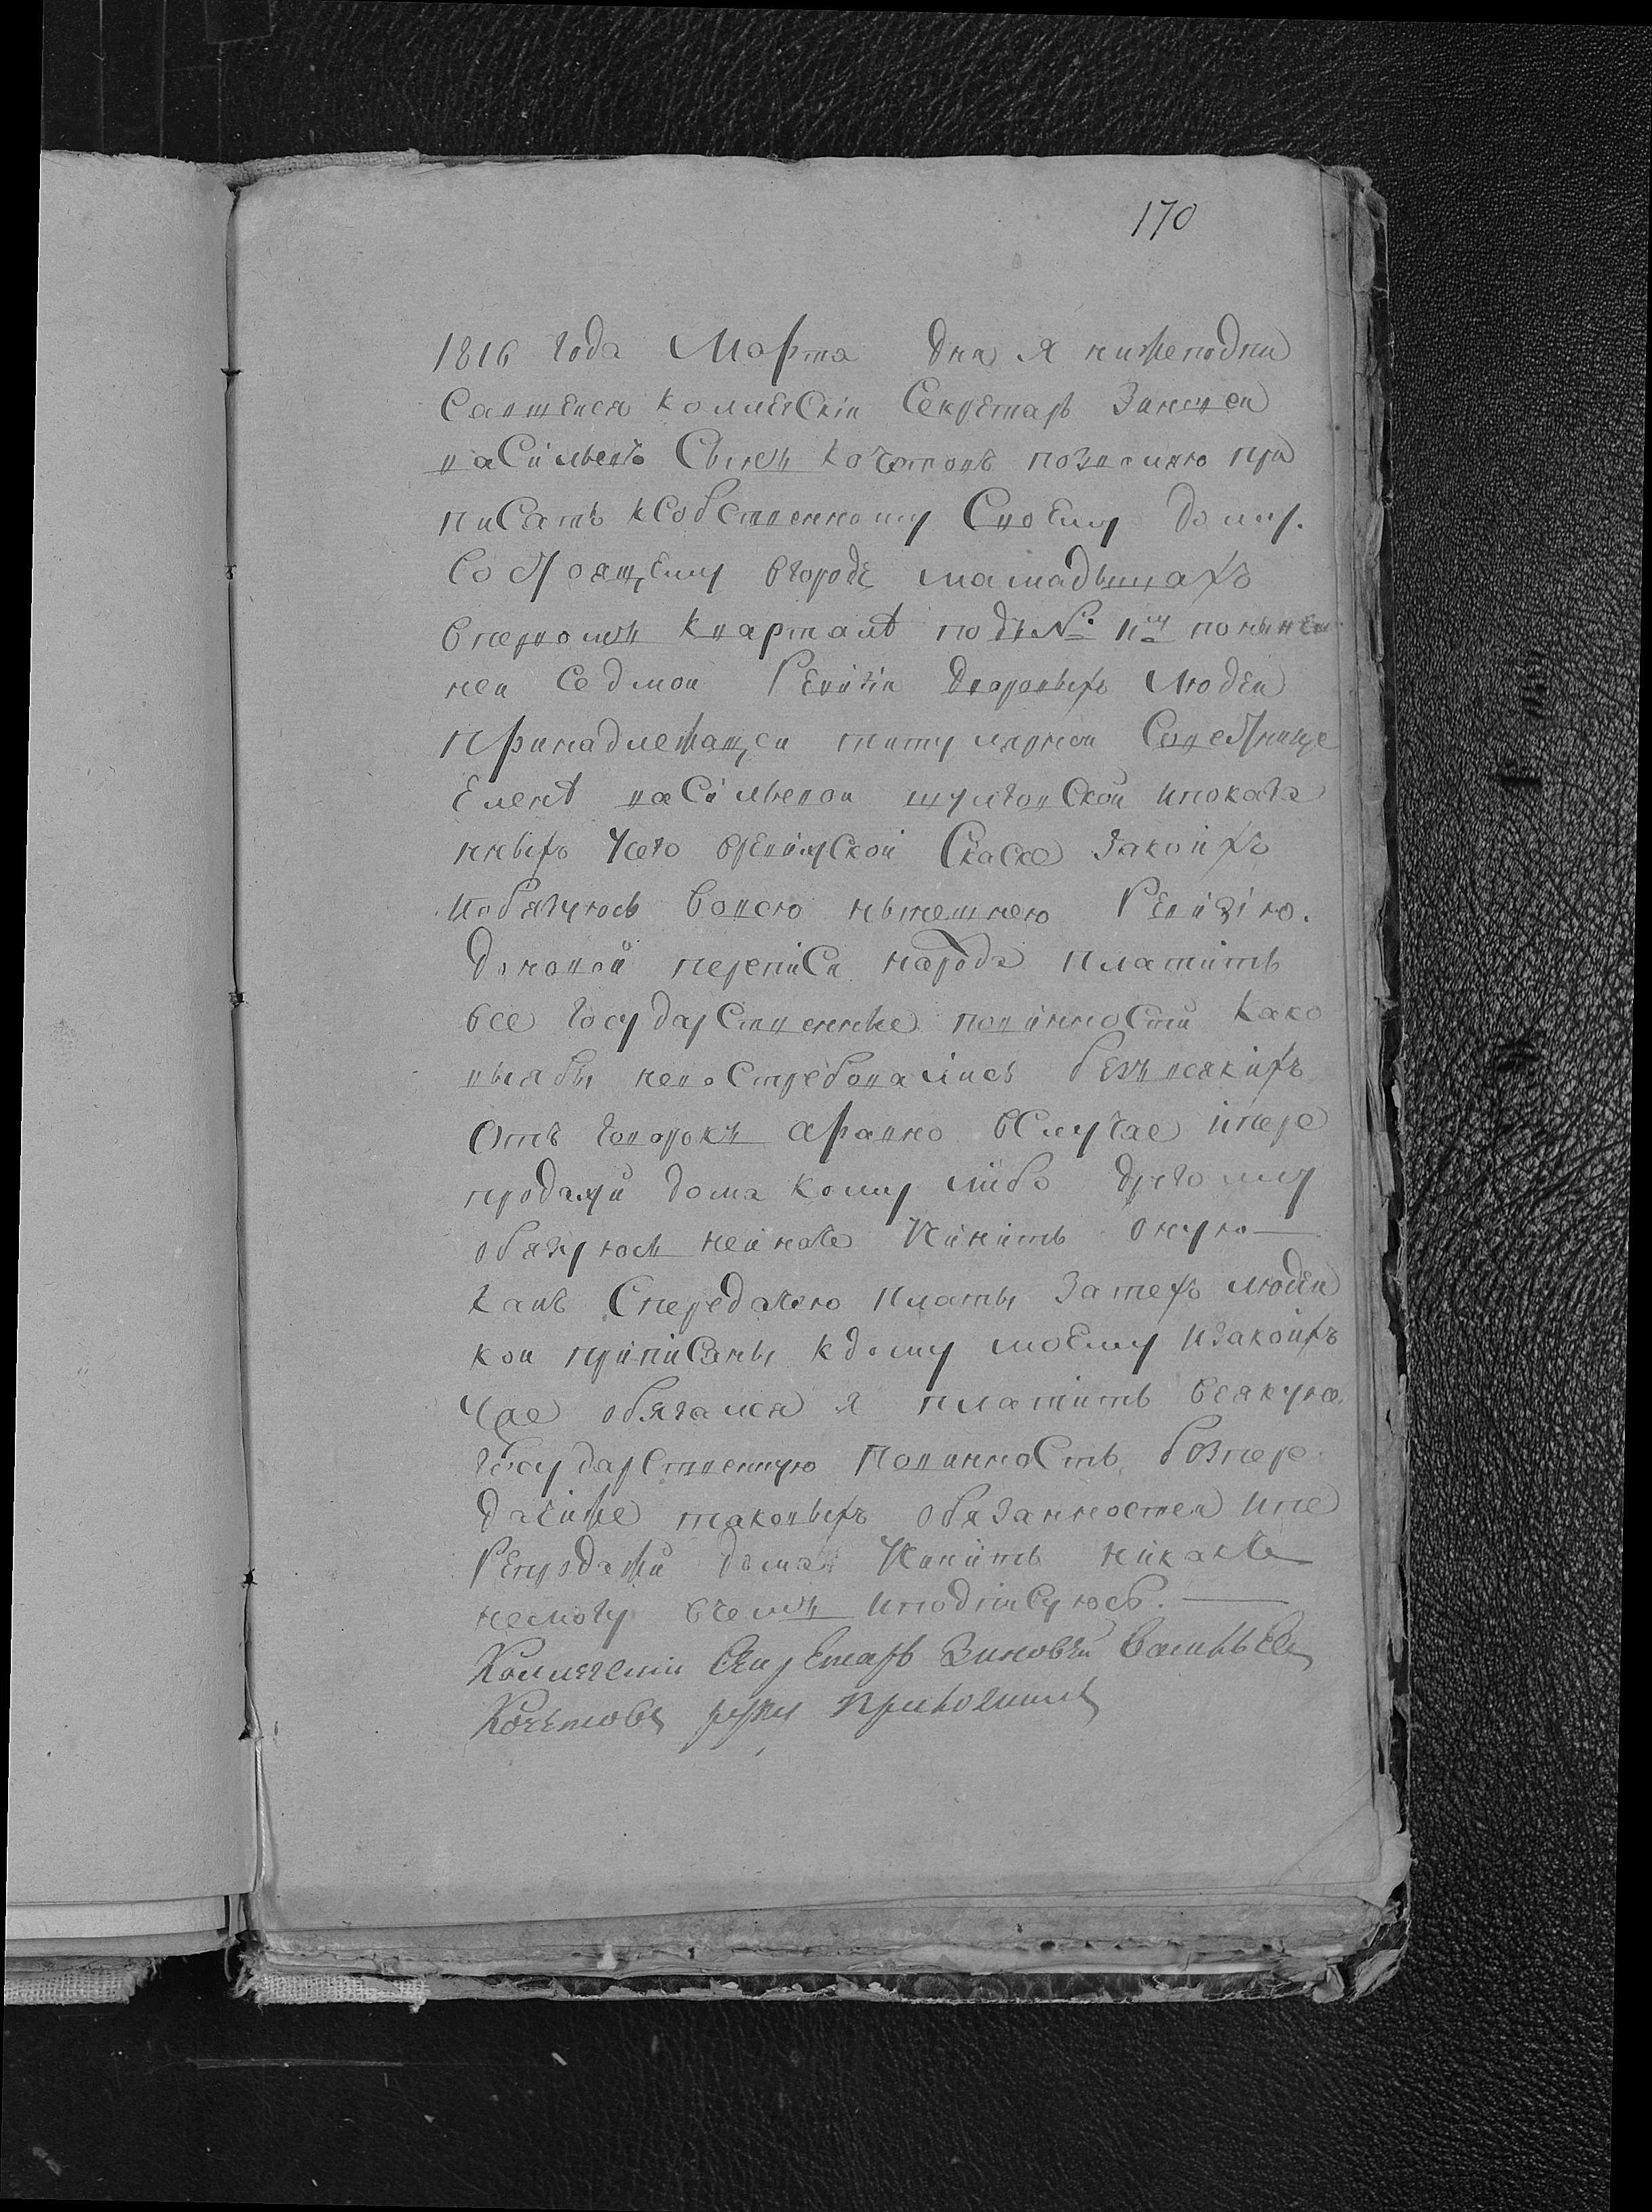 170
1816 года Марта дня я нижеподпи
савшейся коллежскій Секретарь Зиновеи
васильевъ Сынъ Кочетовъ позволяю при
писать ксобственному Своему дому.
Состоящему вгороде мамадышахъ
впервомъ кварталѣ подъ № 11м понынеш
неи Седмои Ревизіи дворовыхъ людеи
принадлежащеи титулярнои Советнице
Еленѣ васильевои шулговской ипоказа
нныхъ Уее вревижской Скаске закоихъ
иобязуюсь Вовсю нынешнею Ревизію.
доновой переписи народа платить
все Государственные повинности како
выябы непостребовались безъ всякихъ
отъ говорокъ аравно вслучае ипере
продажи дома кому либо другому
обязуюсь неиначе Чинить оную
какъ Спередачею платы за техъ людеи
кои приписаны кдому моему изакоихъ
Уже обязался я платить всякую
Государственную повинность, безпере
дачиже таковыхъ обязанностеи ипе
Репродажи дома Чинить никакъ
немогу вчемъ иподписуюсь.
Коллежскии Секретарь Зиновеи Васильевъ
Кочетовъ руку приложилъ